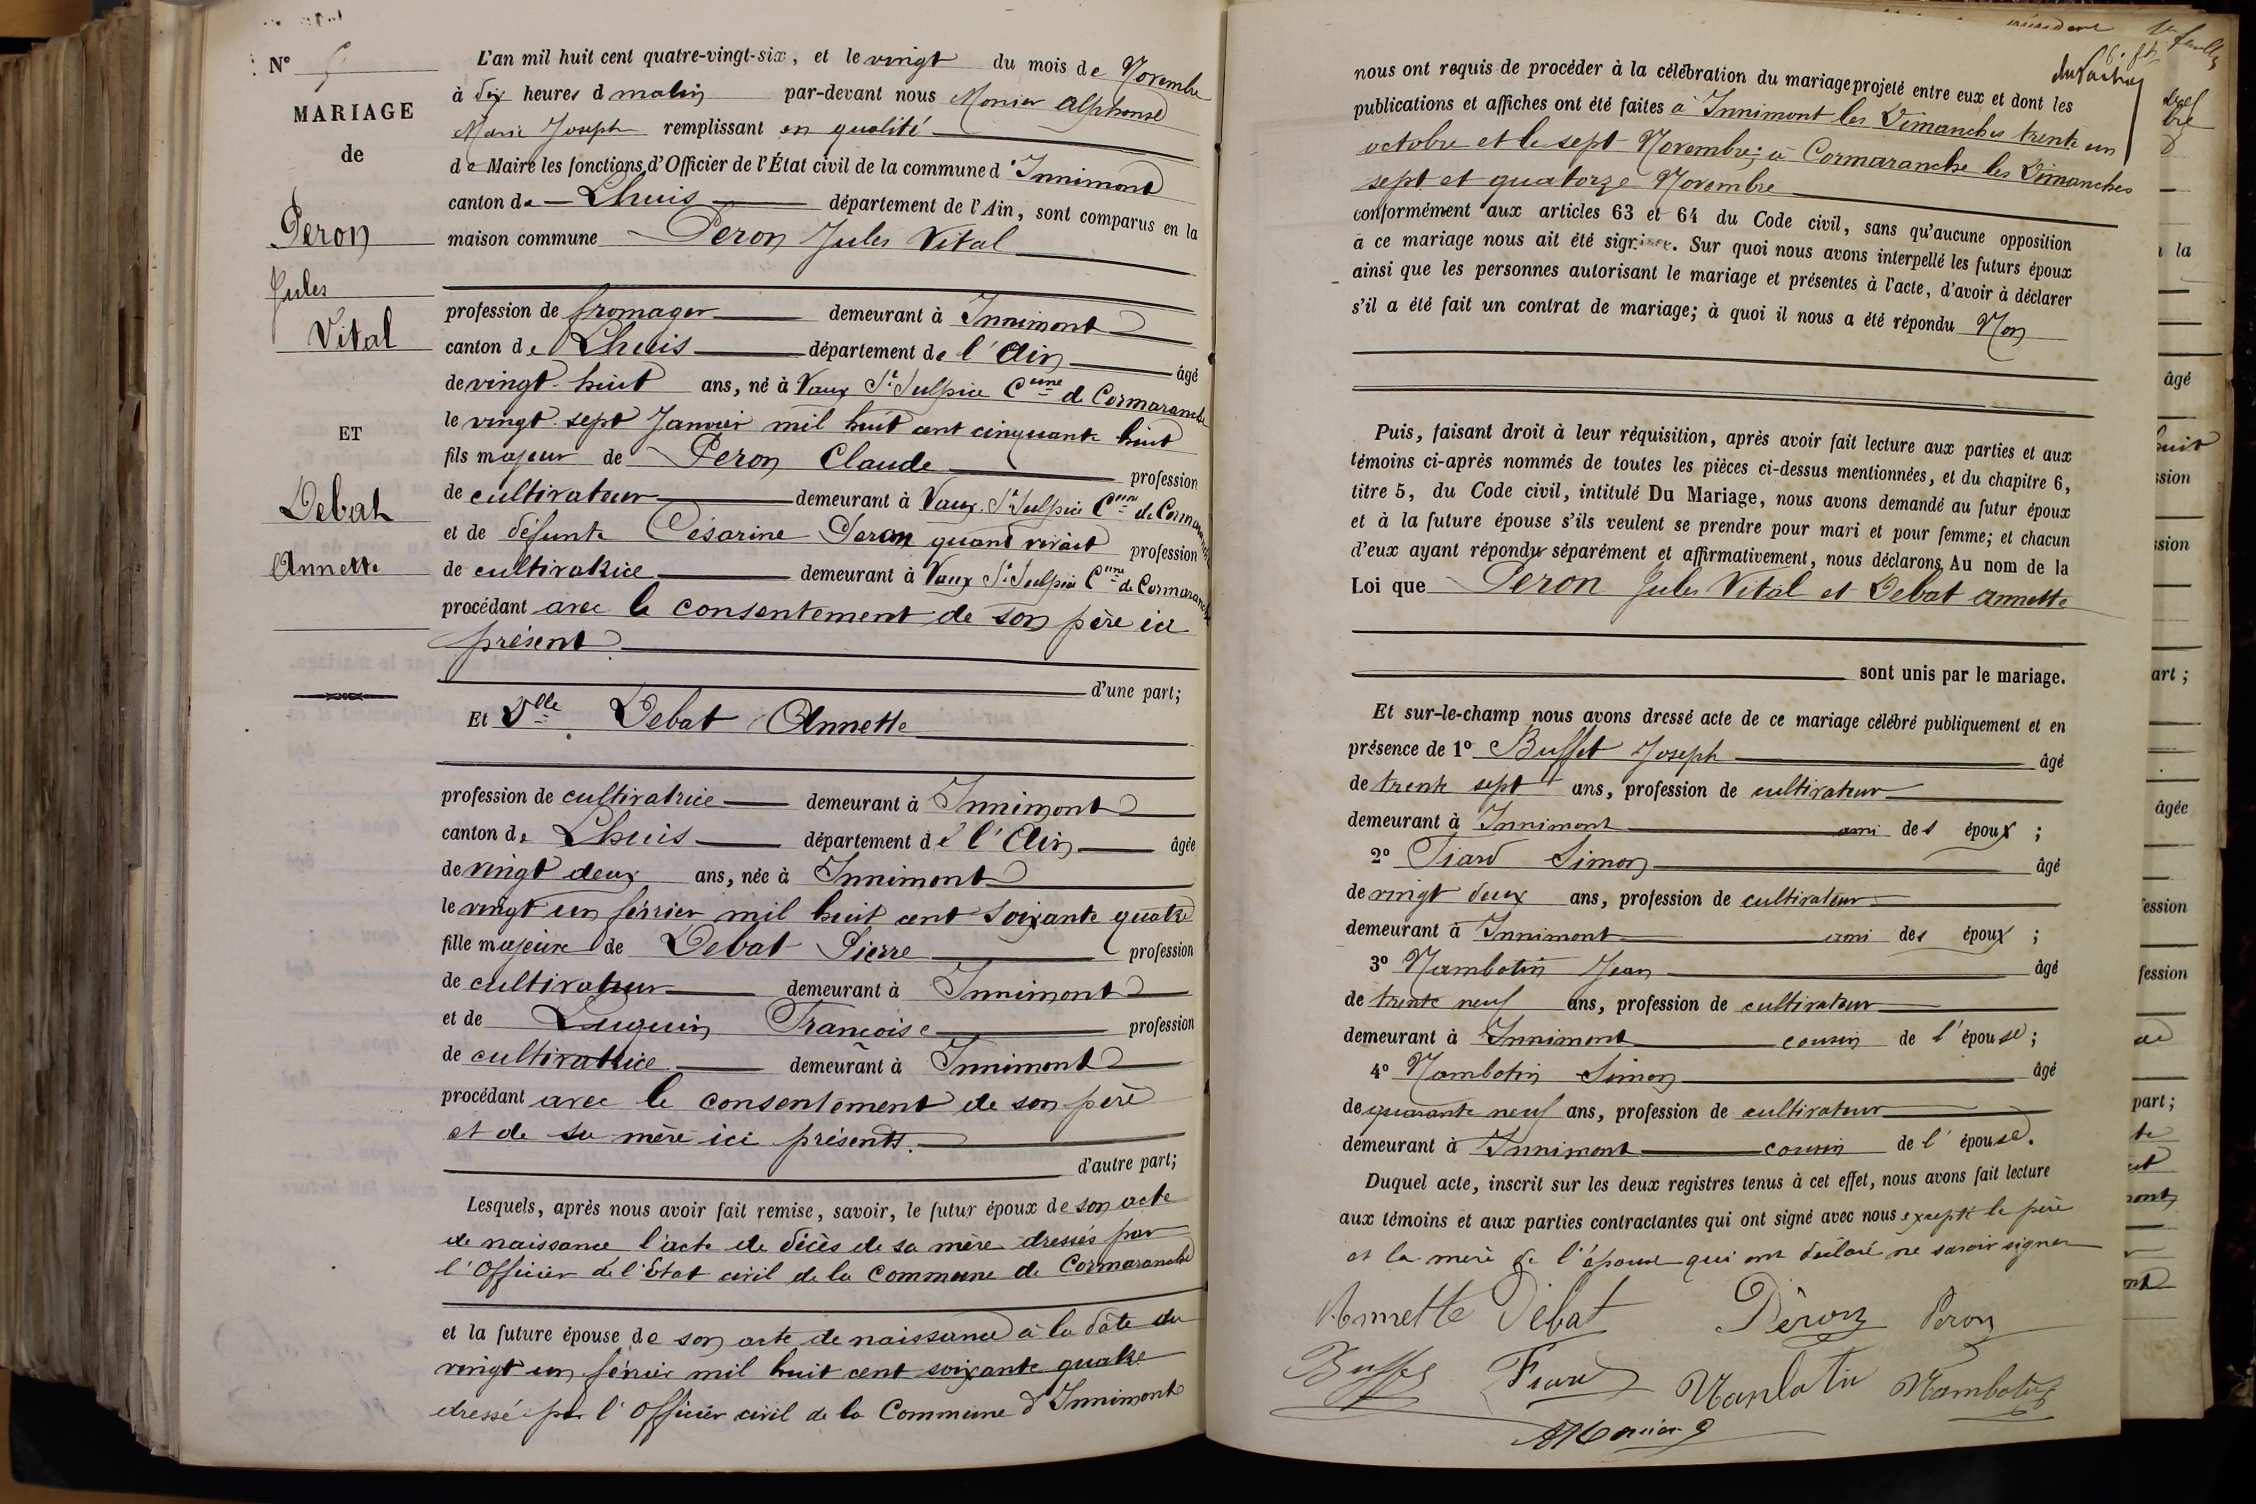 N° 5
MARIAGE
de
Peron
Jules
Vital
ET
Debat
Annette
L'an mil huit cent quatre-vingt-six, et le vingt du mois de Novembre
à dix heures d matin par-devant nous Monier Alphonse
Marie Joseph remplissant en qualité
de Maire les fonctions d'Officier de l'État civil de la commune d'Innimont
canton de Lhuis département de l'Ain, sont comparus en la
maison commune Peron Jules Vital
profession de fromager demeurant à Innimont
canton de Lhuis département de l'Ain âgé
de vingt-huit ans, né à Vaux St Sulpice Cune de Cormaranche
le vingt-sept Janvier mil huit cent cinquante huit
fils majeur de Peron Claude profession
de cultivateur demeurant à Vaux-St Sulpice Cune de Cormaranche
et de défunte Césarine Peron quand vivait profession
de cultivatrice demeurant à Vaux St Sulpice Cune de Cormaranche
procédant avec le consentement de son père ici
présent
d'une part;
Et Dlle Debat Annette
profession de cultivatrice demeurant à Innimont
canton de Lhuis département de l'Ain âgée
de vingt deux ans, née à Innimont
le vingt un février mil huit cent soixante quatre
fille majeure de Debat Pierre profession
de cultivateur demeurant à Innimont
et de Luquin Françoise profession
de cultivatrice demeurant à Innimont
procédant avec le consentement de son père
et de sa mère ici présents.
d'autre part;
Lesquels, après nous avoir fait remise, savoir, le futur époux de son acte
de naissance l'acte de décès de sa mère dressés par
l'Officier de l'Etat civil de la Commune de Cormaranche
et la future épouse de son acte de naissance à la date du
vingt un février mil huit cent soixante quatre
dressé par l'Officier civil de la Commune d'Innimont
nous ont requis de procéder à la célébration du mariage projeté entre eux et dont les
publications et affiches ont été faites à Innimont les Dimanches trente un
octobre et le sept Novembre; à Cormaranche les Dimanches
sept et quatorze Novembre
conformément aux articles 63 et 64 du Code civil, sans qu'aucune opposition
à ce mariage nous ait été signifiée. Sur quoi nous avons interpellé les futurs époux
ainsi que les personnes autorisant le mariage et présentes à l'acte, d'avoir à déclarer
s'il a été fait un contrat de mariage; à quoi il nous a été répondu Non
Puis, faisant droit à leur réquisition, après avoir fait lecture aux parties et aux
témoins ci-après nommés de toutes les pièces ci-dessus mentionnées, et du chapitre 6,
titre 5, du Code civil, intitulé Du Mariage, nous avons demandé au futur époux
et à la future épouse s'ils veulent se prendre pour mari et pour femme; et chacun
d'eux ayant répondu séparément et affirmativement, nous déclarons Au nom de la
Loi que Peron Jules Vital et Debat Annette
sont unis par le mariage.
Et sur-le-champ nous avons dressé acte de ce mariage célébré publiquement et en
présence de 1° Buffet Joseph âgé
de trente sept ans, profession de cultivateur
demeurant à Innimont ami des époux ;
2° Fiard Simon âgé
de vingt deux ans, profession de cultivateur
demeurant à Innimont ami des époux ;
3° Nambotin Jean âgé
de trente neuf ans, profession de cultivateur
demeurant à Innimont cousin de l'épouse;
4° Nambotin Simon âgé
de quarante neuf ans, profession de cultivateur
demeurant à Innimont cousin de l'épouse.
Duquel acte, inscrit sur les deux registres tenus à cet effet, nous avons fait lecture
aux témoins et aux parties contractantes qui ont signé avec nous excepté le père
et la mère de l'épouse qui ont déclaré ne savoir signer
Annette Débat Péron Peron
Buffet Fiard Nanbotin Nambotin
A Monier
la
âgé
huit
ssion
ssion
art ;
âgée
fession
fession
part ;